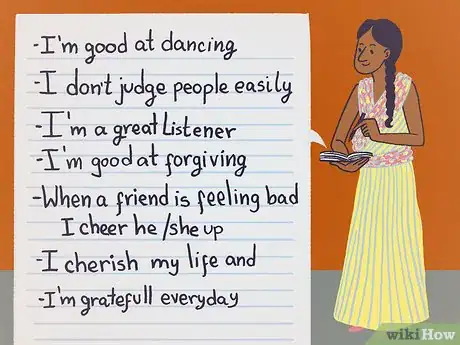 -I'm good at dancing
-I don't judge people easily
-I'm a great listener
-I'm good at forgiving
-When a friend is feeling bad
I cheer he/she up
-I cherish my life and
-I'm gratefull everyday
wikiHow